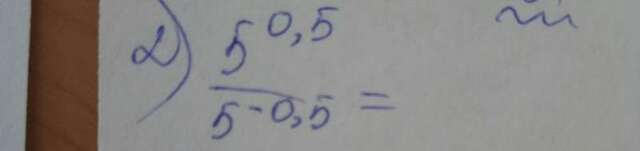 2) 5^0,5 / 5^-0,5 =